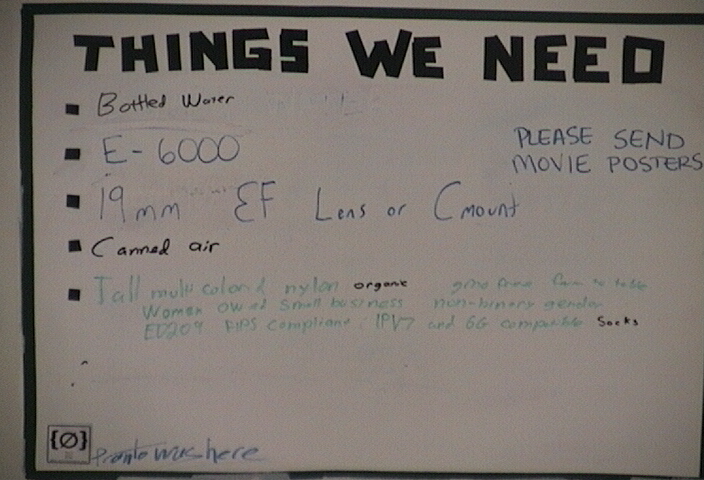 THINGS WE NEED
Bottled Water
E-6000
PLEASE SEND
MOVIE POSTERS
19mm EF Lens or Cmount
Canned air
Tall multi colored nylon organic farm to table
Women owned small business non-binary gender
ED209 FIPS compliant IPV7 and 6G compatible Socks
{Ø}
was here